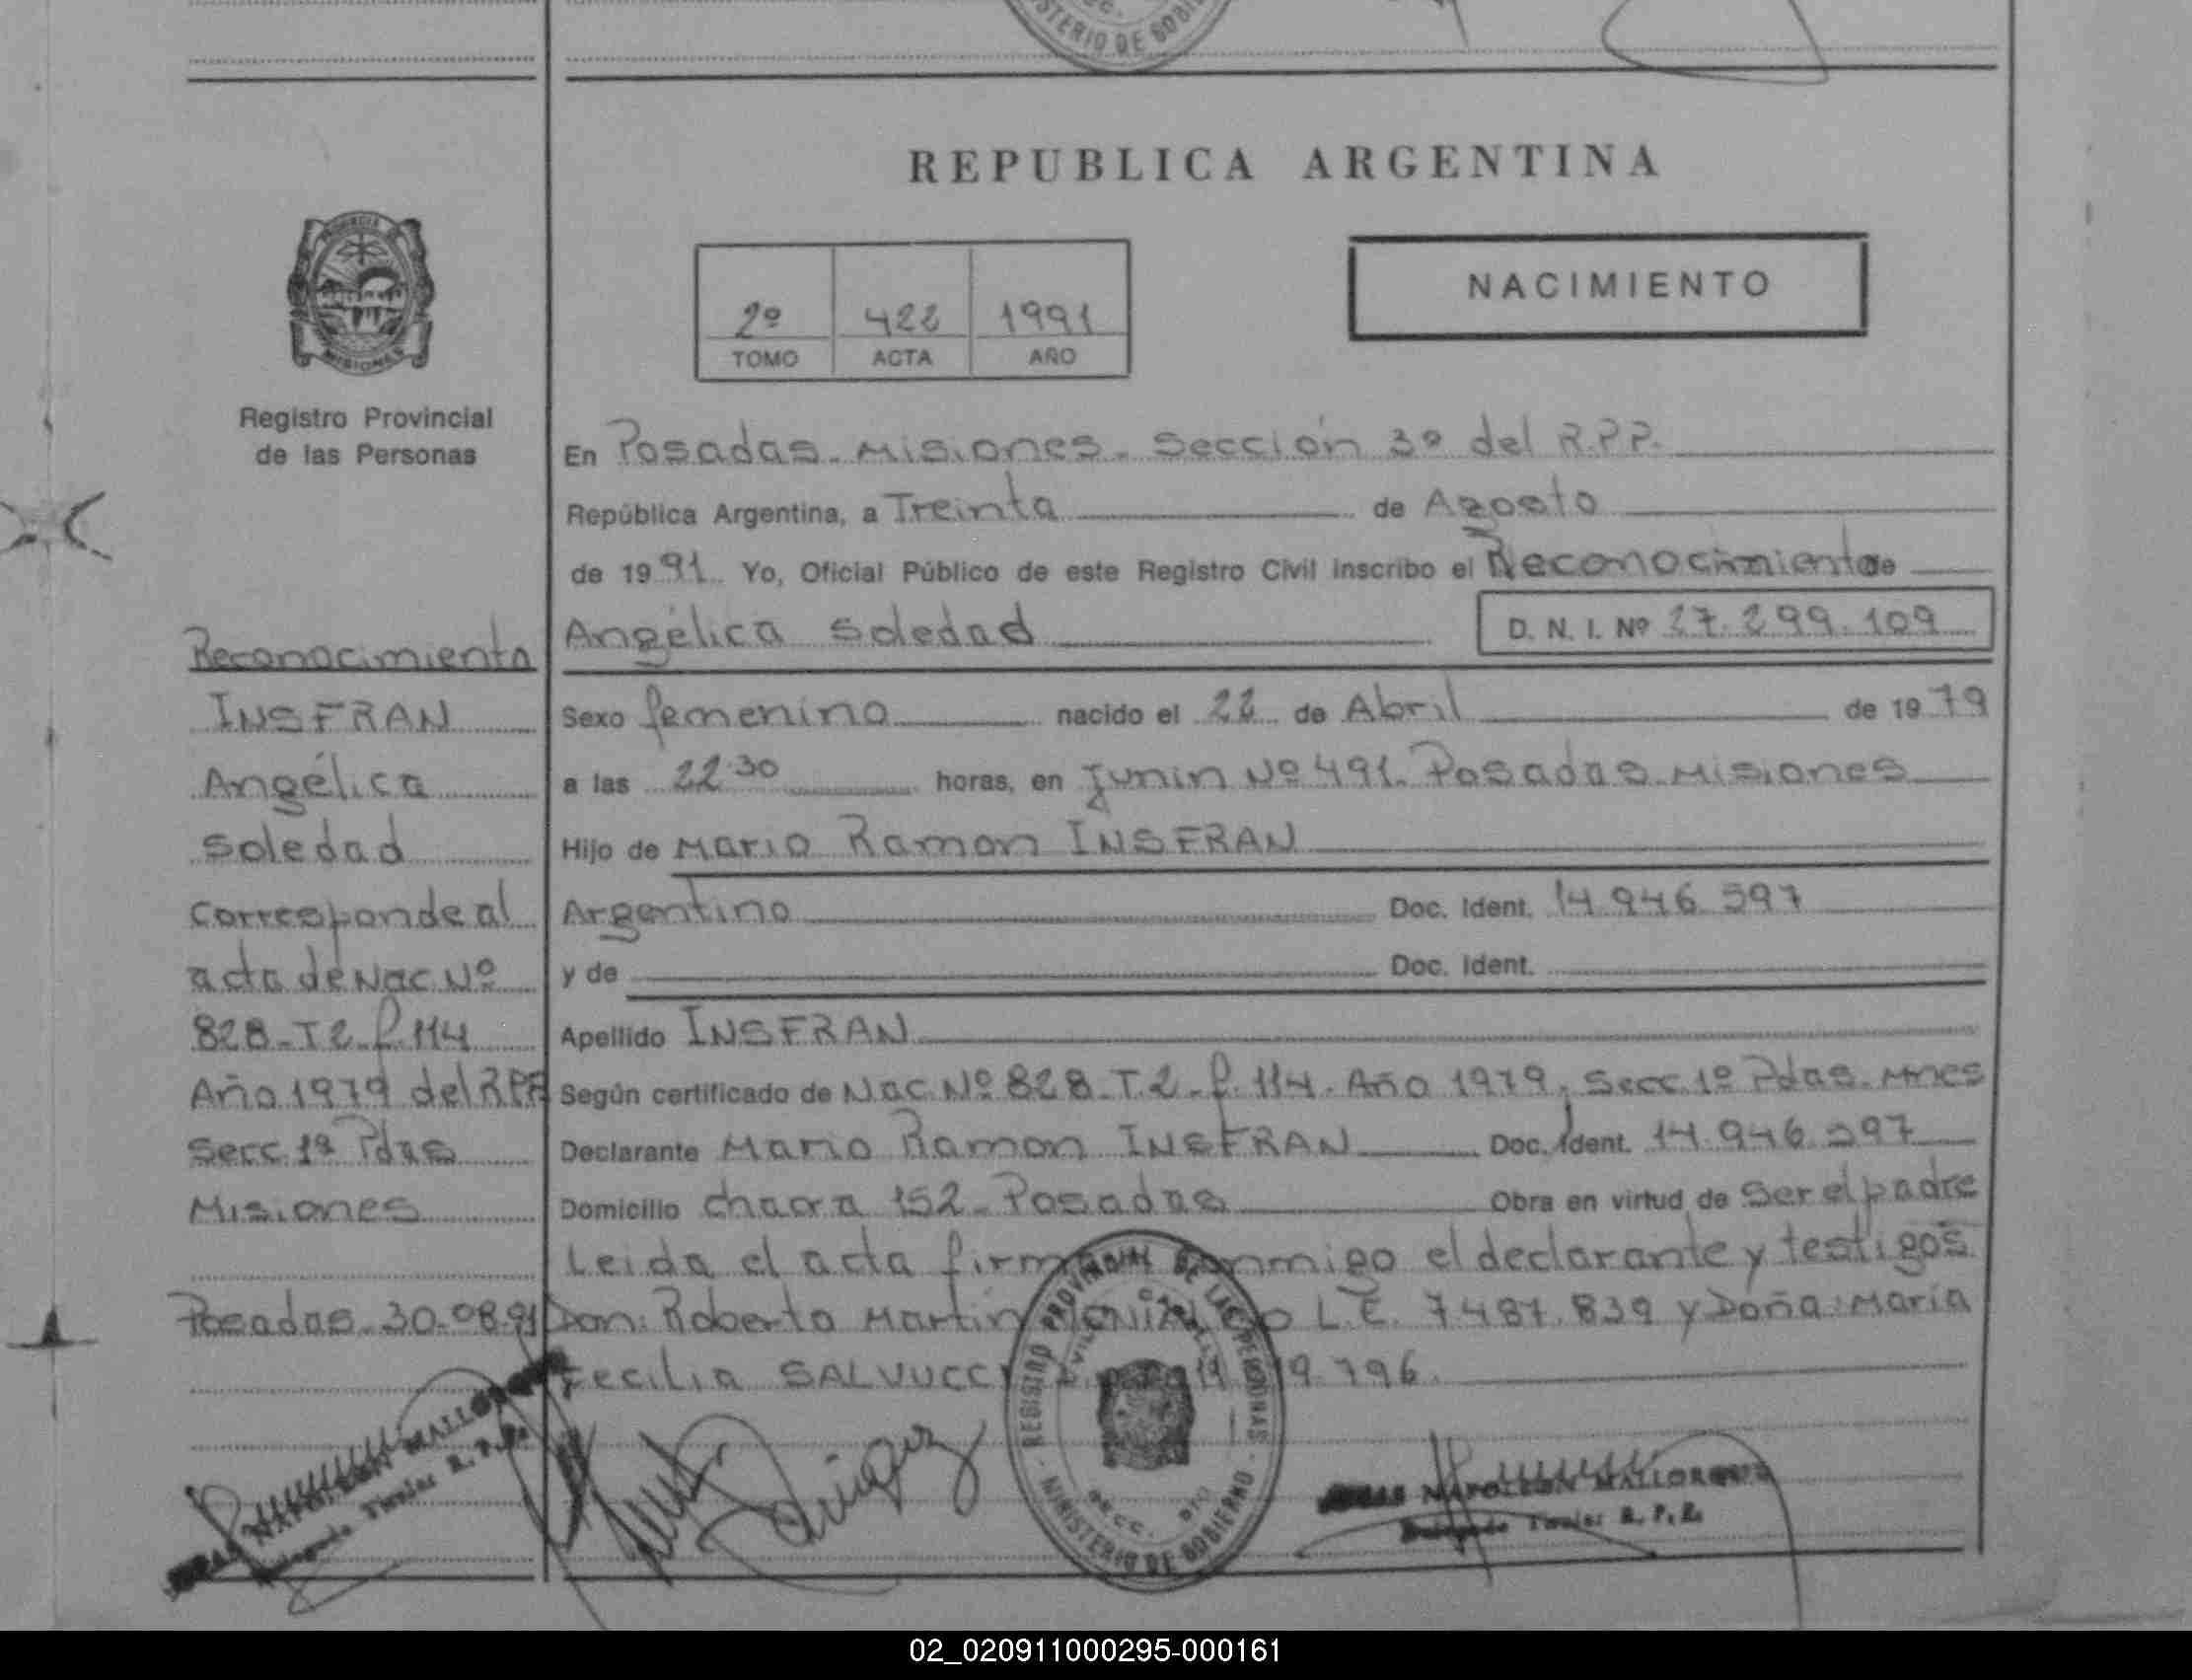 MINISTERIO DE GOBIERNO
REPUBLICA ARGENTINA
NACIMIENTO
2º 422 1991
TOMO ACTA AÑO
MISIONES
Registro Provincial
de las Personas
En Posadas. Misiones. Sección 3º del R.P.P.
República Argentina, a Treinta de Agosto
de 1991. Yo, Oficial Público de este Registro Civil inscribo el Reconocimiento de
Angélica Soledad D. N. I. Nº 27.299.109
Sexo femenino nacido el 22 de Abril de 1979
a las 22:30 horas, en Junin Nº 491. Posadas. Misiones
Hijo de Mario Ramon INSFRAN
Argentino Doc. Ident. 14.946.597
y de Doc. Ident.
Apellido INSFRAN
Según certificado de Nac. Nº 828. T.2. f. 114. Año 1979, Secc. 1º Pdas. Mnes
Declarante Mario Ramon INSFRAN Doc. Ident. 14.946.597
Domicilio chacra 152. Posadas Obra en virtud de Ser el padre
Leida el acta firman conmigo el declarante y testigos
Don: Roberto Martin L.E. 7.487.839 y Doña: María
Cecilia SALVUCCI 796.
Reconocimiento
INSFRAN
Angélica
Soledad
Corresponde al
acta de Nac. Nº
828. T 2. f. 114
Año 1979 del R.P.P.
Secc. 1ª Pdas
Misiones
Posadas. 30.08.91
NAPOLEON MALLORQUIN
R. P. P.
REGISTRO PROVINCIAL DE LAS PERSONAS
MINISTERIO DE GOBIERNO
NAPOLEON MALLORQUIN
R. P. P.
02_020911000295-000161